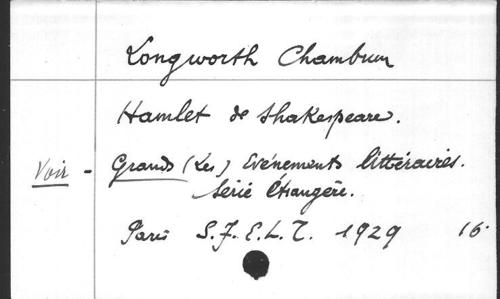 Longworth Chambrun
Hamlet de Shakespeare.
Voir - Grands (Les) Evénements littéraires.
Série étrangère.
Paris S.F.E.L.T. 1929 16.